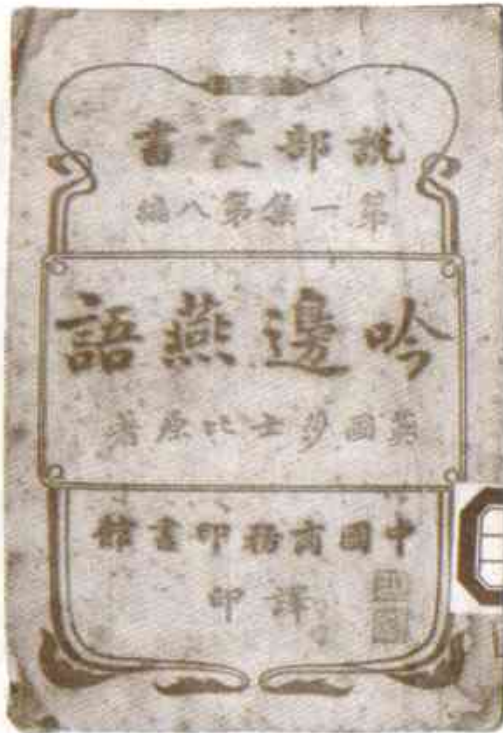 說部叢書
第一集第八編
吟邊燕語
英國莎士比原著
中國商務印書館
譯印